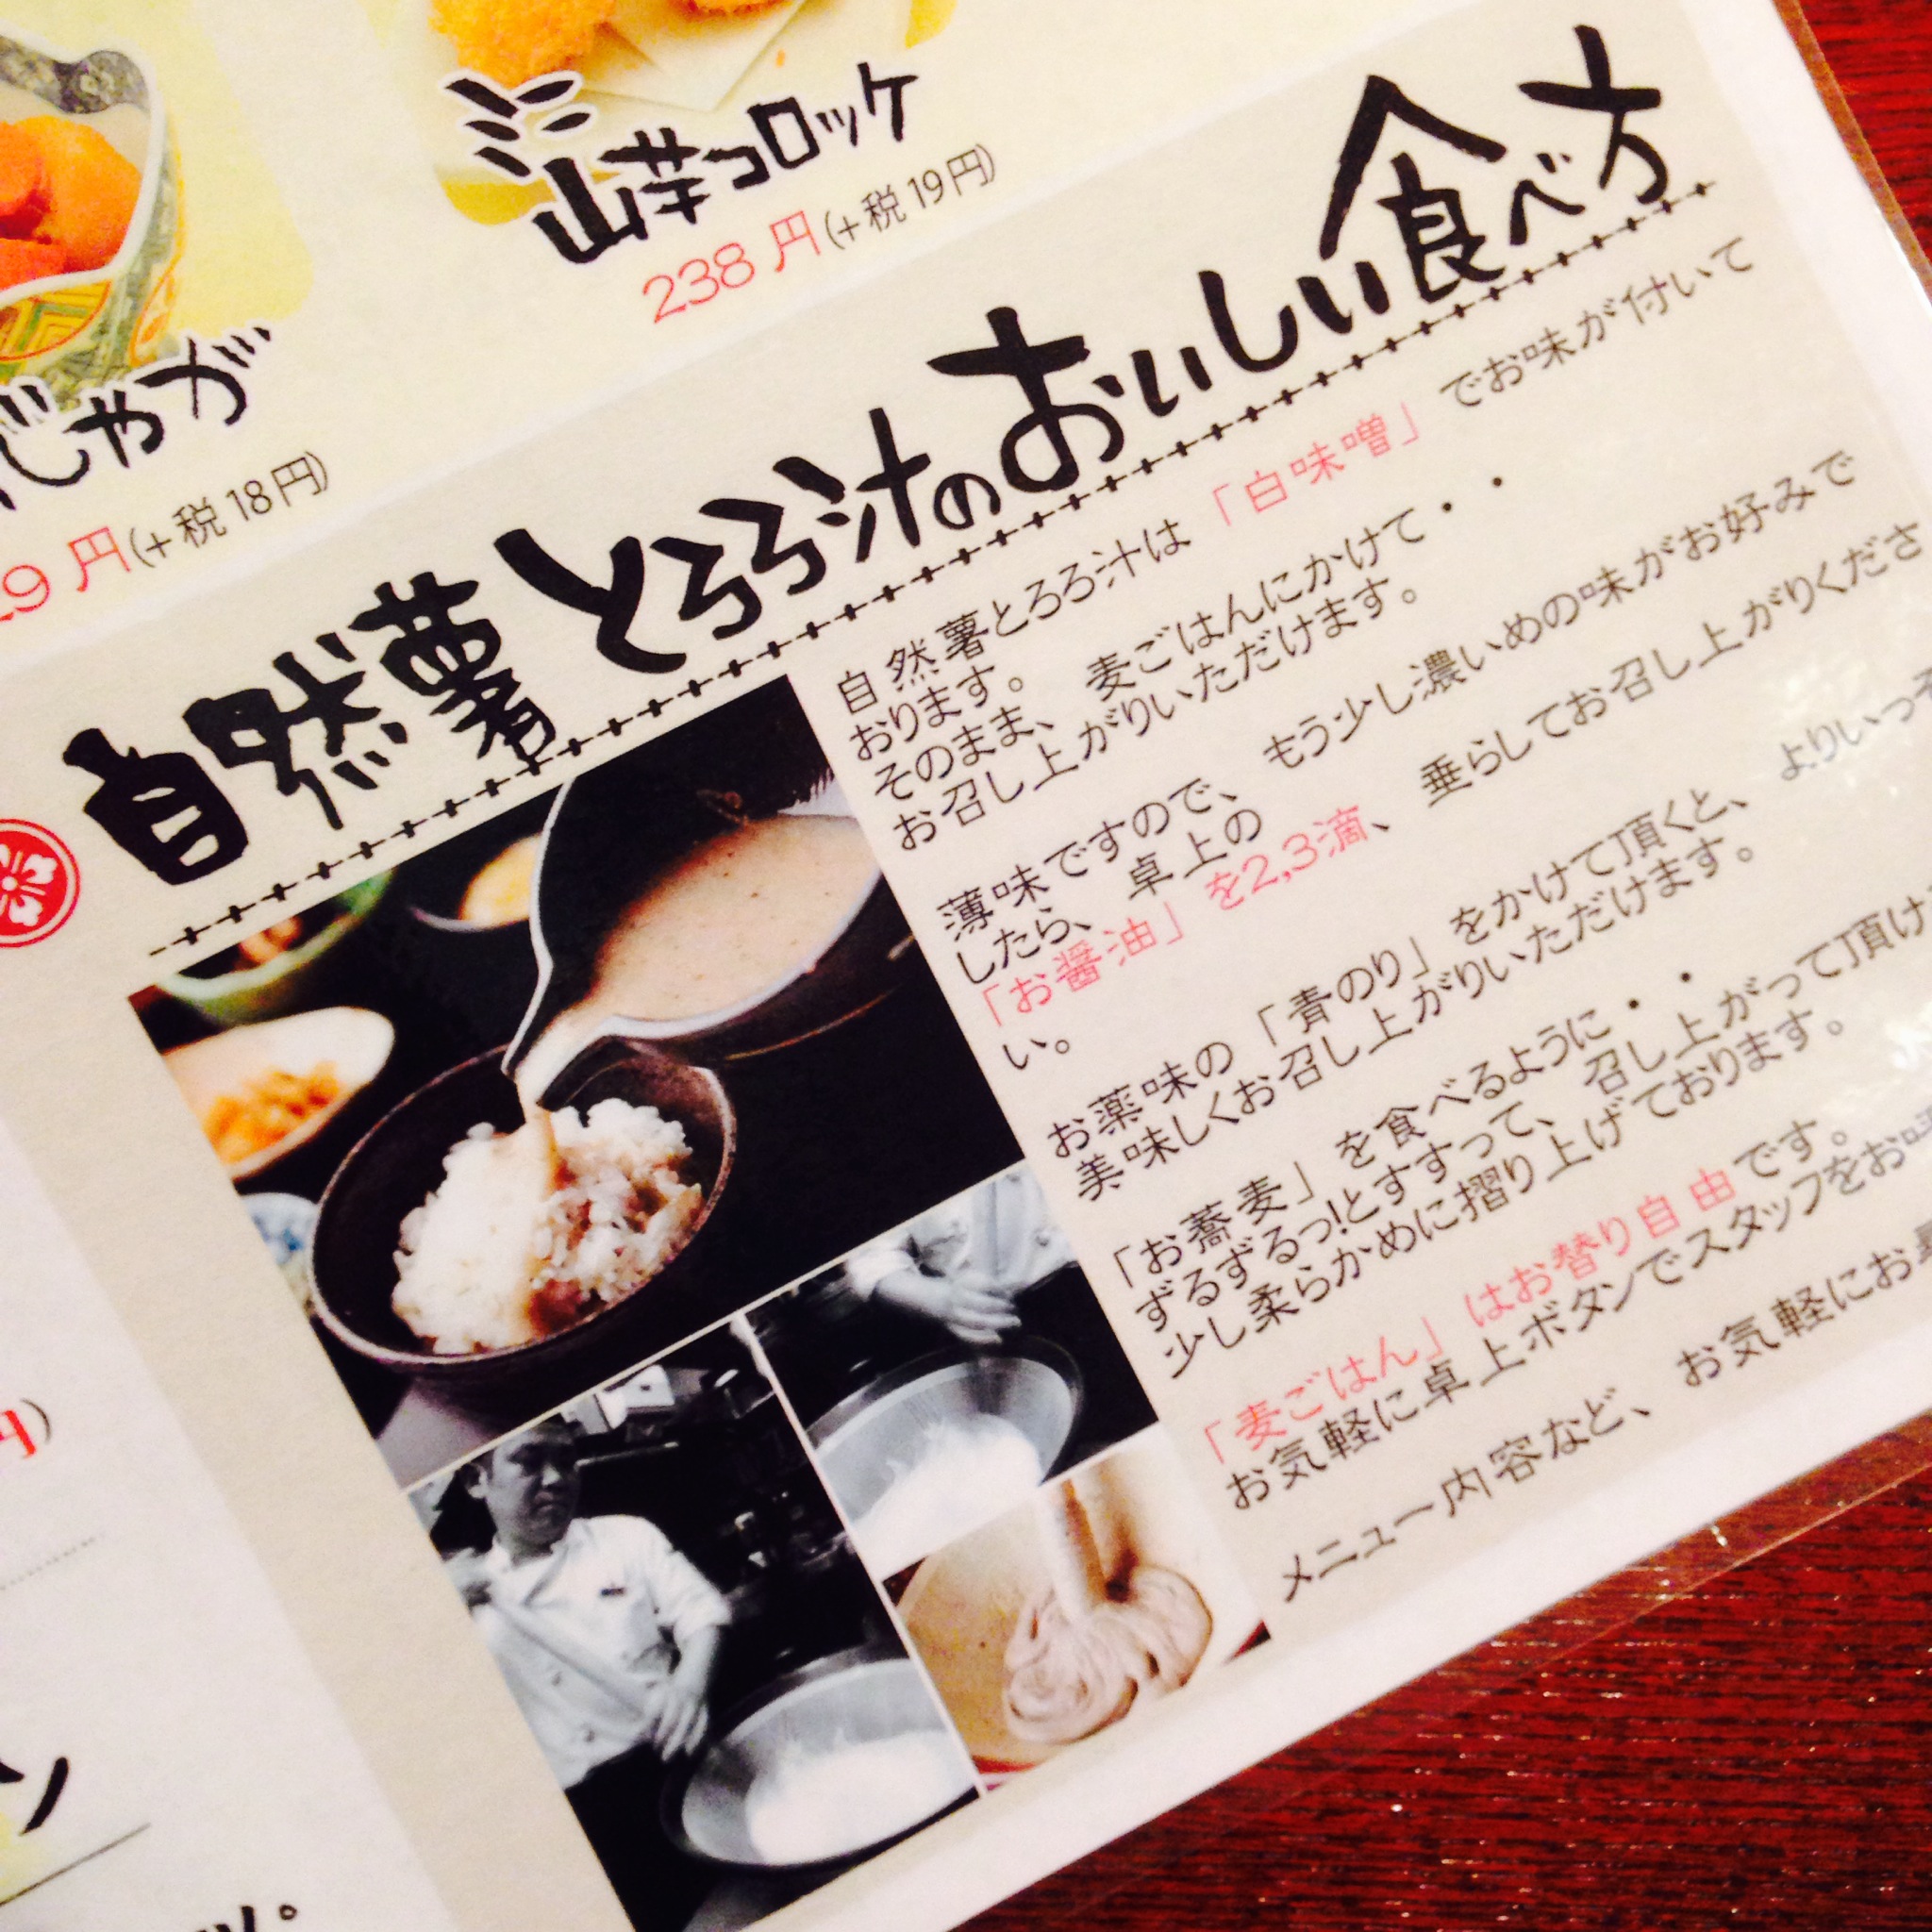 ミニ
山芋コロッケ
238円(+税19円)
じゃが
円(+税18円)
自然薯とろろ汁のおいしい食べ方
自然薯とろろ汁は「白味噌」でお味が付いて
おります。
そのまま、麦ごはんにかけて・・
お召し上がりいただけます。
薄味ですので、もう少し濃いめの味がお好みで
したら、卓上の
「お醤油」を2,3滴、垂らしてお召し上がりくださ
い。
お薬味の「青のり」をかけて頂くと、よりいっそ
美味しくお召し上がりいただけます。
「お蕎麦」を食べるように・・
ずるずるっ!とすすって、召し上がって頂け
少し柔らかめに摺り上げております。
「麦ごはん」はお替り自由です。
お気軽に卓上ボタンでスタッフをお
メニュー内容など、お気軽にお
円)
ン